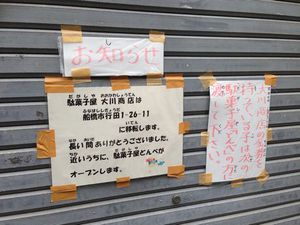 お知らせ
駄菓子屋 大川商店は
船橋市行田1-26-11
に移転します。
長い間ありがとうございました。
近いうちに、駄菓子屋どんぺが
オープンします。
大川商店の金券を
持ってる子は次の
駄菓子屋どんぺの方
渡して下さい。